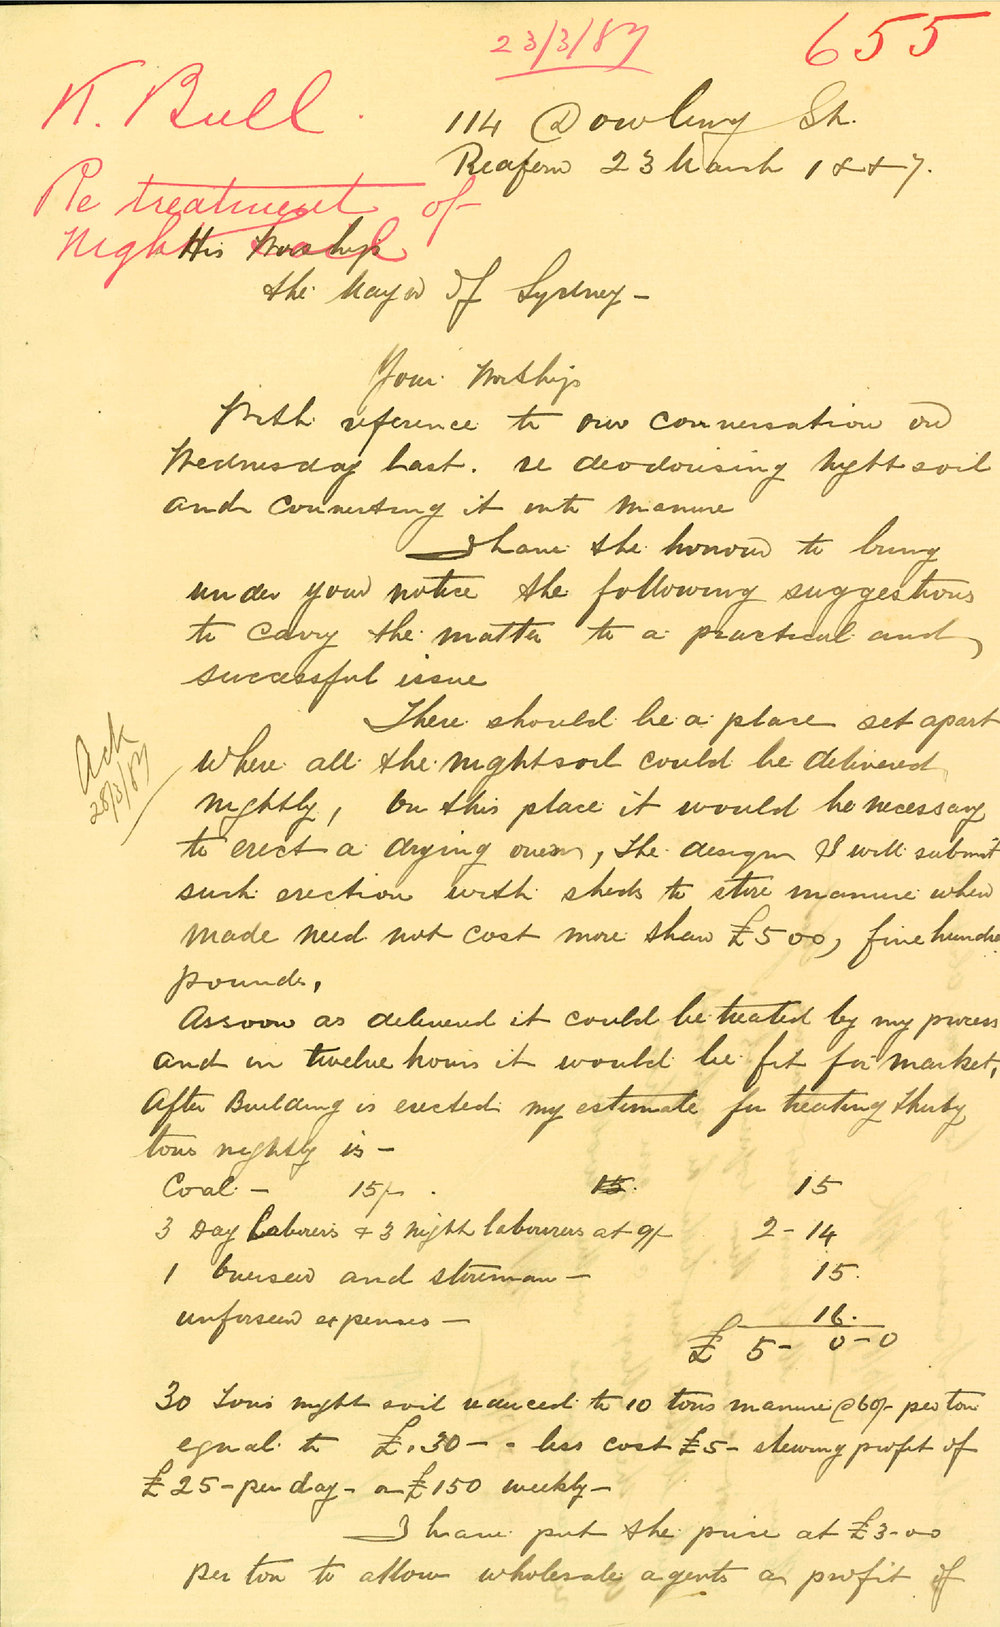 23/3/87
655
K. Bull.
Re treatment of
Night Soil
114 Dowling St.
Redfern 23 March 1887.
His Worship
the Mayor of Sydney -
Your Worship
With reference to our conversation on
Wednesday last. re deodorising night soil
and converting it into manure
I have the honour to bring
under your notice the following suggestions
to carry the matter to a practical and
successful issue
There should be a place set apart
where all the nightsoil could be delivered
nightly, On this place it would be necessary
to erect a drying oven, the design I will submit
such erection with sheds to store manure when
made need not cost more than £500, five hundred
pounds,
Ack
28/3/87
As soon as delivered it could be treated by my process
and in twelve hours it would be fit for market,
After Building is erected my estimate for treating thirty
tons nightly is -
Coal - 15/- . 15. 15
3 Day Laborers & 3 night labourers at 9/- 2 - 14
1 Overseer and storeman - 15.
unforseen expenses - 16.
£ 5 - 0 - 0
30 Tons night soil reduced to 10 tons manure @ 60/- per ton
equal to £.30 - - less cost £5 - shewing profit of
£25 - per day - or £150 weekly -
I have put the price at £3-00
per ton to allow wholesale agents a profit of